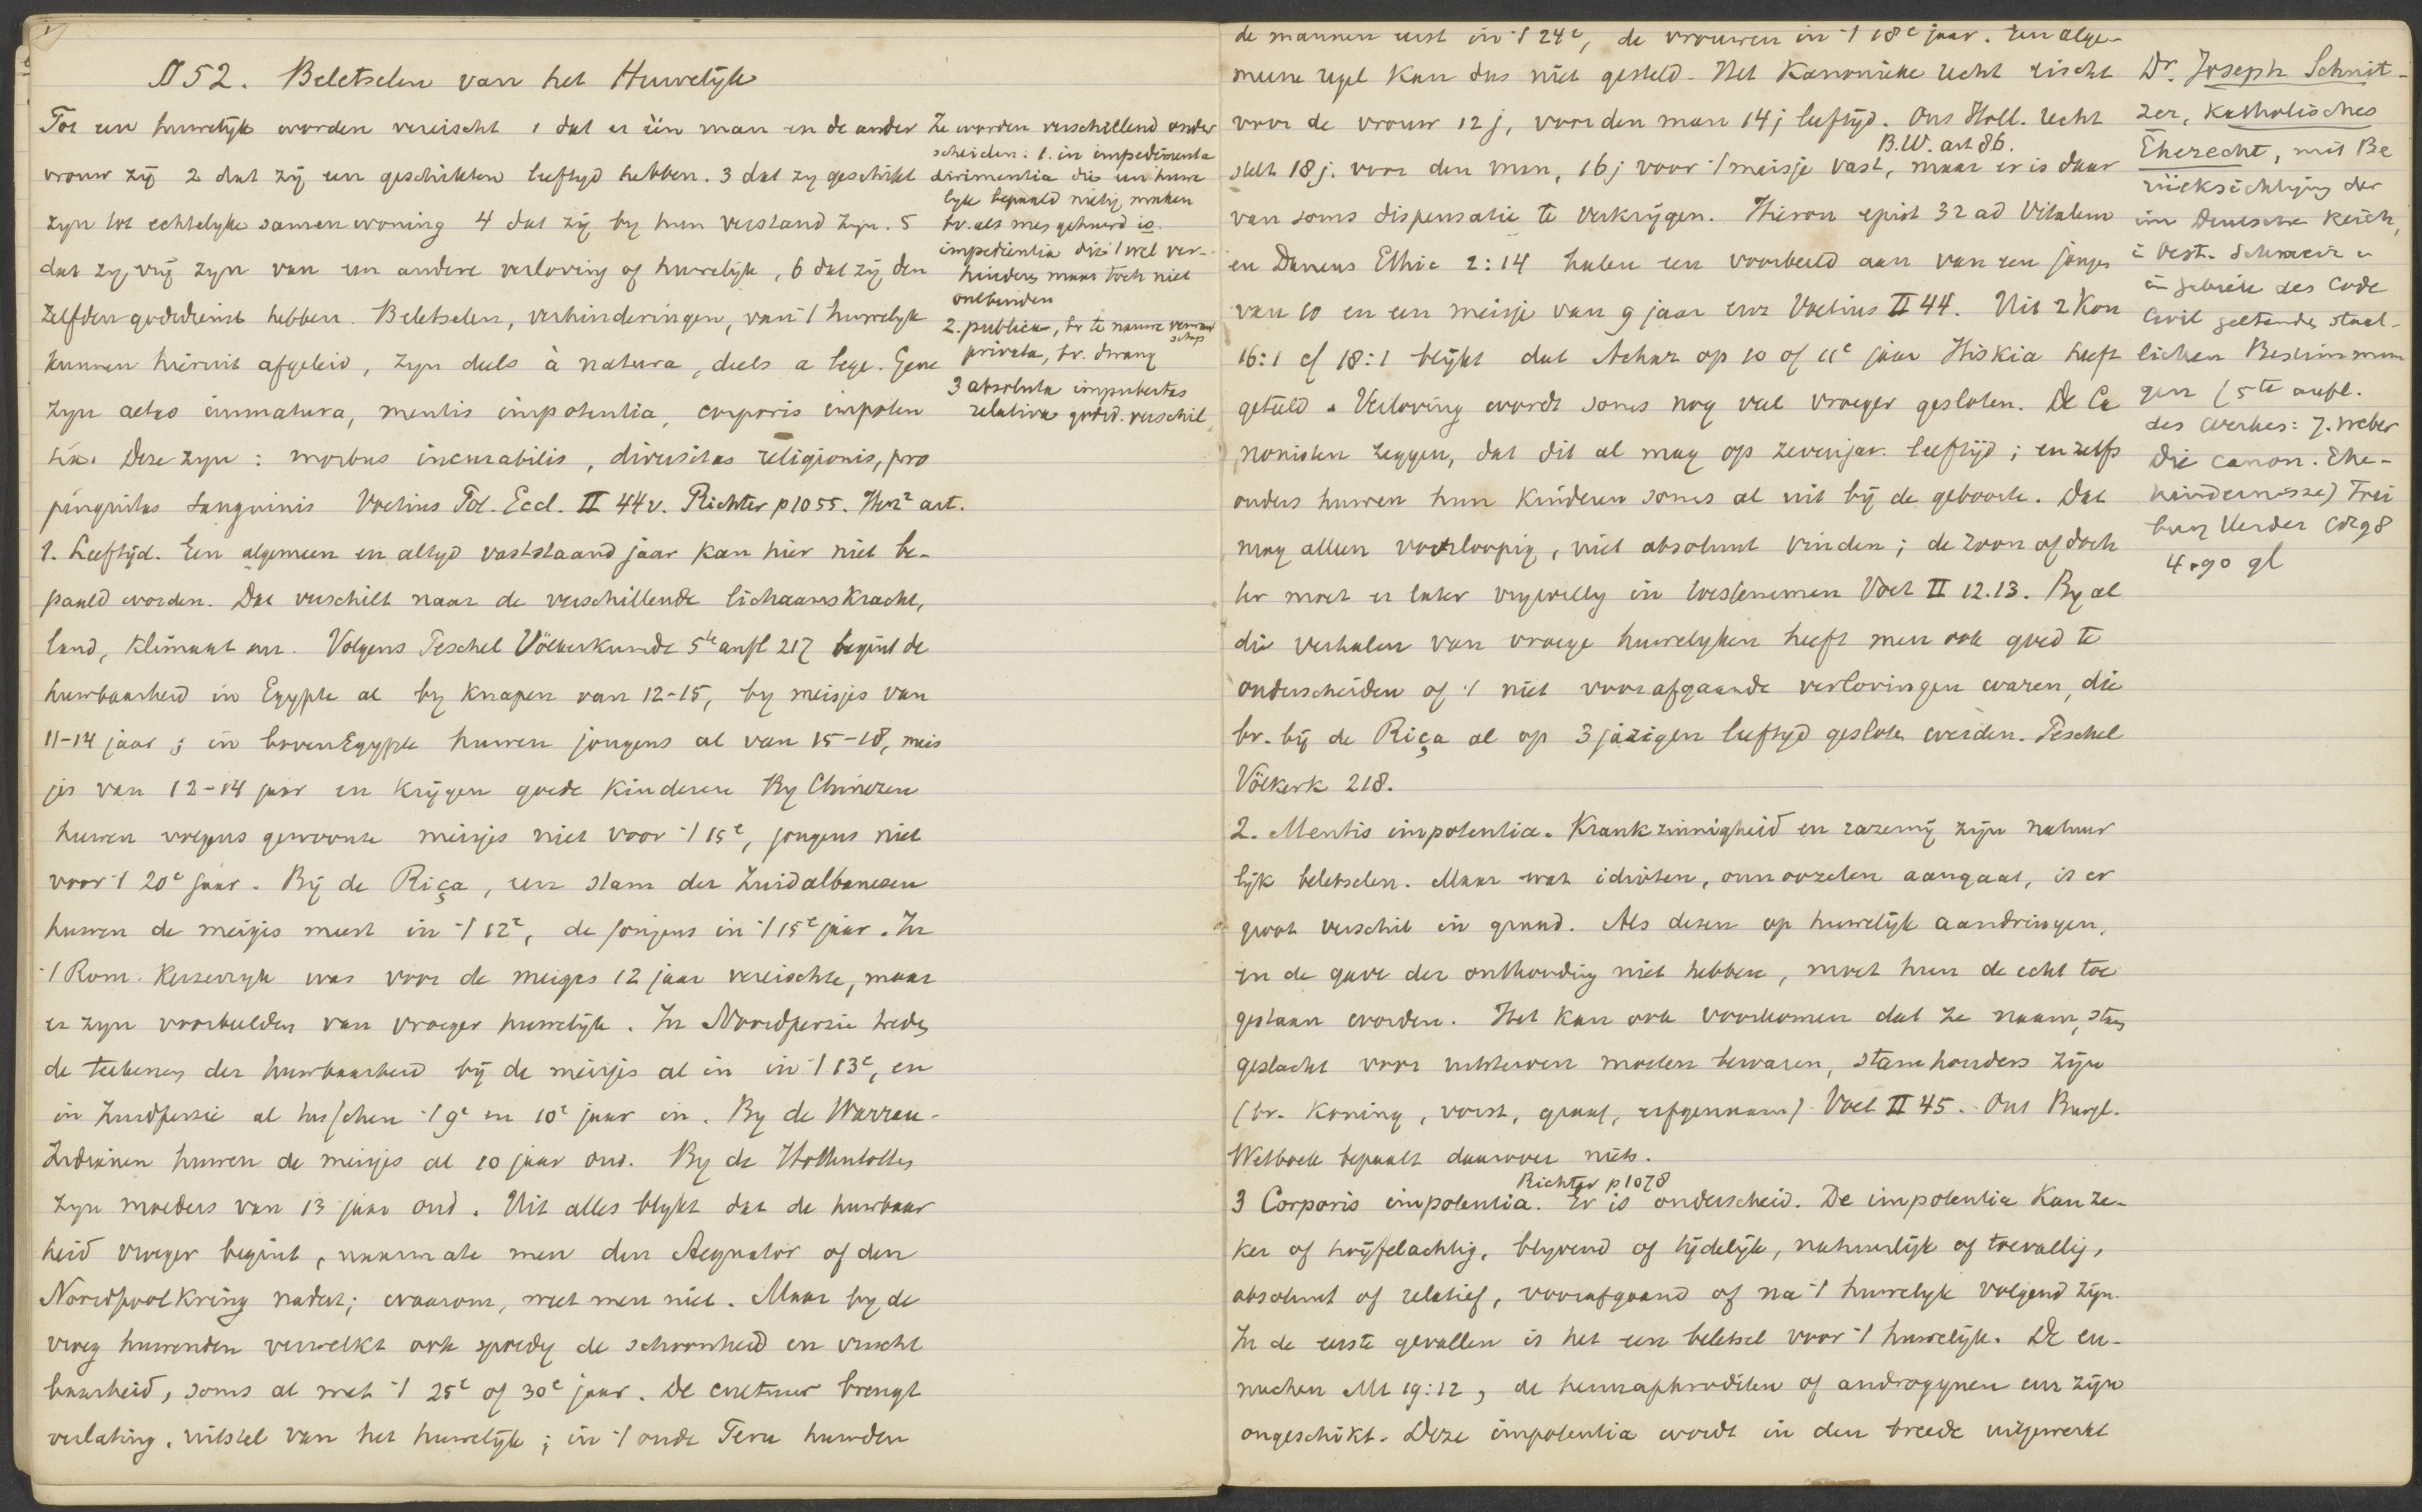 § 52. Beletselen van het Huwelijk
Tot een huwelijk worden vereischt 1 dat er één man en de ander
vrouw zij 2 dat zij een geschikten leeftyd hebben. 3 dat zy geschikt
zyn tot echtelyke samenwoning 4 dat zij by hun verstand zyn. 5
dat zy vrij zyn van een andere verloving of huwelijk, 6 dat zij den
zelfden godsdienst hebben. Beletselen, verhinderingen, van 't huwelyk
kunnen hieruit afgeleid, zyn deels à natura, deels a lege. Gene
zyn aetas immatura, mentis impotentia, corporis impoten
tia. Deze zyn: morbus incurabilis, diversitas religionis, pro
pinquitas sanguinis Voetius Pol. Eccl. II 44v. Richter p 1055. Herz² art.
1. Leeftijd. Een algemeen en altyd vaststaand jaar kan hier niet be-
paald worden. Dat verschilt naar de verschillende lichaamskracht,
land, klimaat enz. Volgens Peschel Völkerkunde 5te aufl 217 begint de
huwbaarheid in Egypte al by knapen van 12-15, by meisjes van
11-14 jaar; in bovenEgypte huwen jongens al van 15-18, meis
jes van 12-14 jaar en krijgen goede kinderen By Chineezen
huwen volgens gewoonte meisjes niet voor 't 15e, jongens niet
voor 't 20e jaar. Bij de Riça, een stam der Zuidalbanezen
huwen de meisjes meest in 't 12e, de jongens in 't 15e jaar. In
't Rom. Keizerryk was voor de meisjes 12 jaar vereischte, maar
er zyn voorbeelden van vroeger huwelijk. In Noordperzie treden
de teekenen der huwbaarheid bij de meisjes al in in 't 13e, en
in Zuidperzie al tusschen 't 9e en 10e jaar in. By de Warrau-
Indianen huwen de meisjes al 10 jaar oud. By de Hottentotten
zyn moeders van 13 jaar oud. Uit alles blykt dat de huwbaar
heid vroeger begint, naarmate men den Aequator of den
Noordpoolkring nadert; waarom, weet men niet. Maar by de
vroeg huwenden verwelkt ook spoedig de schoonheid en vrucht
baarheid, soms al met 't 25e of 30e jaar. De cultuur brengt
verlating, uitstel van het huwelijk; in 't oude Peru huwden
Ze worden verschillend onder
scheiden: 1. in impedimenta
dirimentia die een huwe
lyk bepaald nietig maken
bv. als men gehuwd is.
impedientia die 't wel ver-
hinderen maar toch niet
ontbinden
2. publica, bv te nauwe verwant
schap
privata, bv. dwang
3 absoluta impubertas
relativa godsd. verschil
de mannen eerst in 't 24e, de vrouwen in 't 18e jaar. Een alge-
meene regel kan dus niet gesteld. Het Kanonieke recht eischt
voor de vrouw 12 j, voor den man 14 j leeftijd. Ons Holl. recht
B.W. art 86.
stelt 18 j. voor den man, 16 j voor 't meisje vast, maar er is daar
van soms dispensatie te verkrijgen. Hieron epist 32 ad Vitalem
en Danaeus Ethic 2:14 halen een voorbeeld aan van een jonge
van 10 en een meisje van 9 jaar enz Voetius II 44. Uit 2 Kon
16:1 cf 18:1 blijkt dat Achaz op 10 of 11e jaar Hiskia heeft
geteeld. Verloving wordt soms nog veel vroeger gesloten. De Ca
nonisten zeggen, dat dit al mag op zevenjar. leeftijd; en zelfs
ouders huwen hun kinderen soms al uit bij de geboorte. Dat
mag alleen voorloopig, niet absoluut binden; de zoon of doch
ter moet er later vrywillig in toestemmen Voet II 12.13. By al
die verhalen van vroege huwelyken heeft men ook goed te
onderscheiden of 't niet voorafgaande verlovingen waren, die
bv. bij de Riça al op 3 jarigen leeftyd gesloten werden. Peschel
Völkerk 218.
2. Mentis impotentia. Krankzinnigheid en razernij zijn natuur
lijk beletselen. Maar wat idioten, onnoozelen aangaat, is er
groot verschil in graad. Als dezen op huwelijk aandringen,
en de gave der onthouding niet hebben, moet hun de echt toe
gestaan worden. Het kan ook voorkomen dat ze naam, stam
geslacht voor uitsterven moeten bewaren, stamhouders zijn
(bv. koning, vorst, graaf, erfgenaam) Voet II 45. Ons Burgl.
Wetboek bepaalt daarover niets.
Richter p 1078
3 Corporis impotentia. Er is onderscheid. De impotentia kan ze-
ker of twijfelachtig, blyvend of tijdelijk, natuurlijk of toevallig,
absoluut of relatief, voorafgaand of na 't huwelyk volgend zijn.
In de eerste gevallen is het een beletsel voor 't huwelijk. De eu-
nuchen Mt 19:12, de hermaphroditen of androgynen enz zijn
ongeschikt. Deze impotentia wordt in den breede uitgewerkt
Dr. Joseph Schnit-
zer, Katholisches
Eherecht, mit Be
rücksichtigung der
im Deutschen Reich,
i Oest. Schweiz u
im Gebiete des Code
Civil geltenden staat-
lichen Bestimmun
gen (5te aufl.
des Werkes: J. Weber
Die canon. Ehe-
hindernisse) Frei
burg Herder 1898
4.90 gl